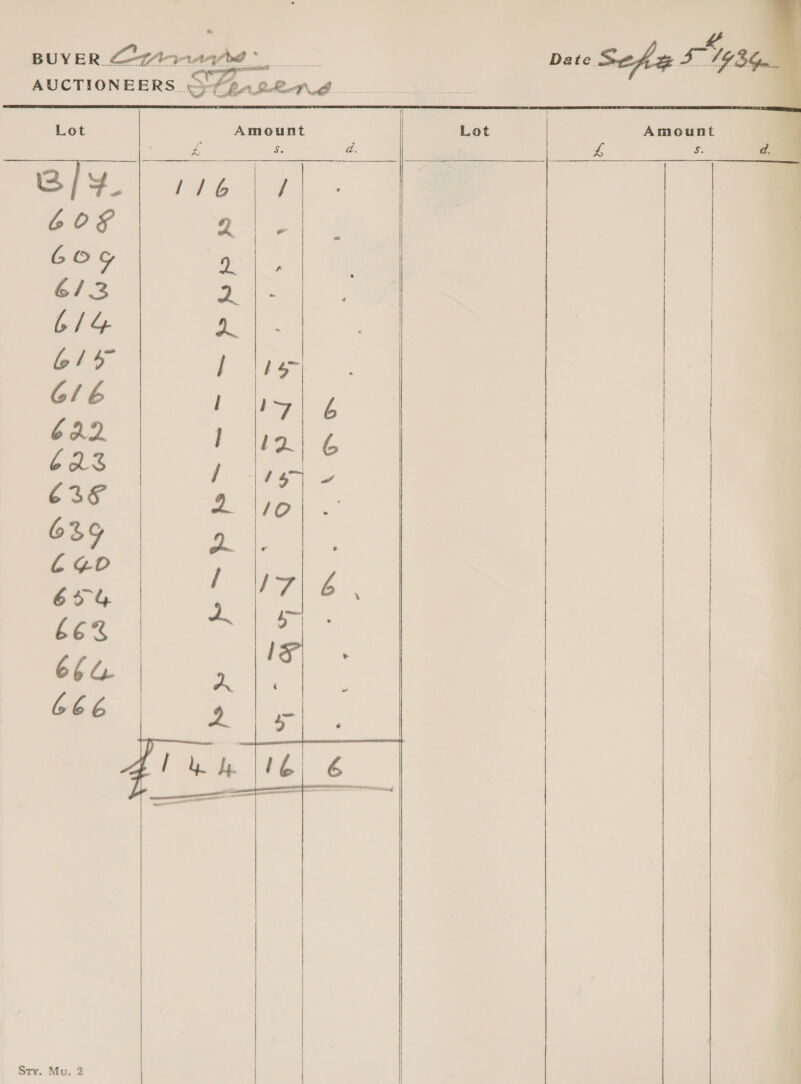 BUYER
Date Sept 5th 1934
AUCTIONEERS Stevens
Lot Amount Lot Amount
£ s. d. £ s. d.
B/F. 116 1 -
608 2 - -
609 2 - -
613 2 - -
614 2 - -
615 1 15 -
616 1 17 6
622 1 12 6
623 1 15 -
638 2 10 -
639 2 - -
640 1 17 6
654 2 5 -
663 18 -
664 2 - -
666 2 5 -
£144 16 6
Sty. Mu. 2